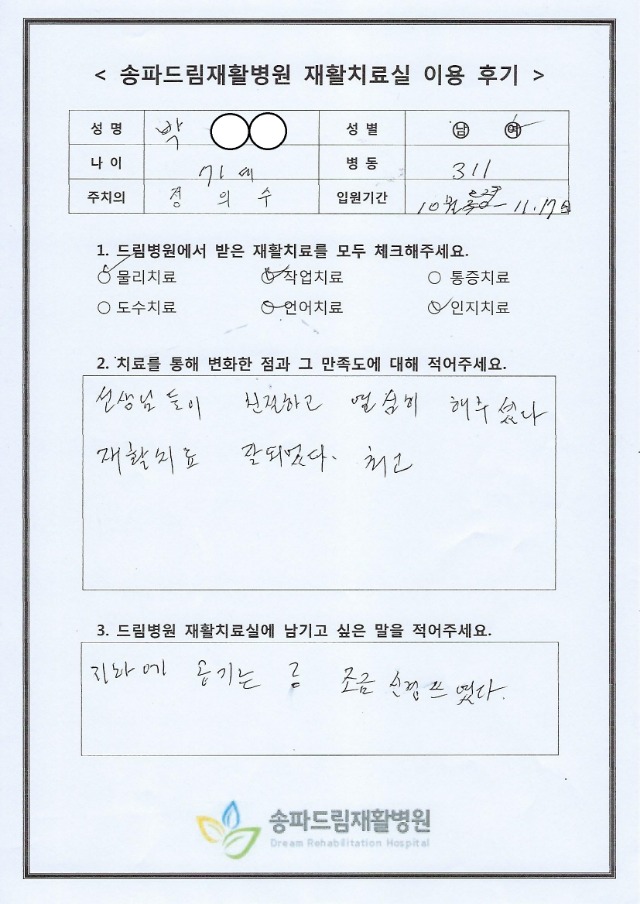 < 송파드림재활병원 재활치료실 이용 후기 >
성 명 박 성 별 남 여
나 이 71세 병 동 311
주치의 정 의 수 입원기간 10월 - 11.17일
1. 드림병원에서 받은 재활치료를 모두 체크해주세요.
물리치료 작업치료 통증치료
도수치료 언어치료 인지치료
2. 치료를 통해 변화한 점과 그 만족도에 대해 적어주세요.
선생님들이 친절하고 열심히 해주셨다
재활치료 잘되었다. 최고
3. 드림병원 재활치료실에 남기고 싶은 말을 적어주세요.
조금 쓰였다.
송파드림재활병원
Dream Rehabilitation Hospital